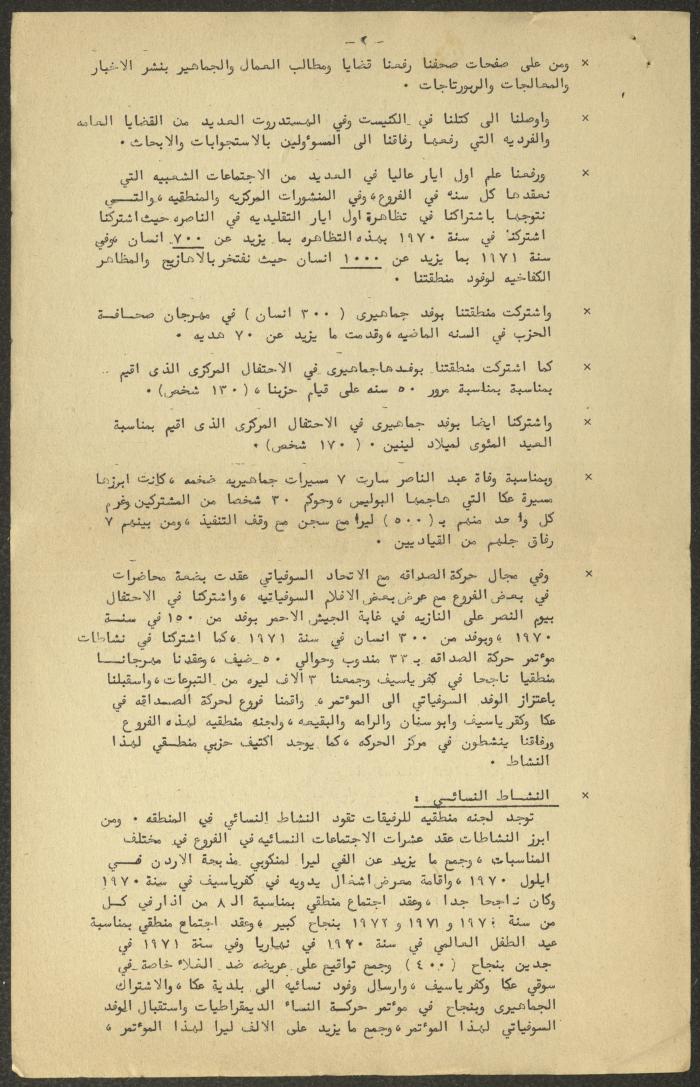 - ٢ -
× ومن على صفحات صحفنا رفعنا قضايا ومطالب العمال والجماهير بنشر الاخبار
والمعالجات والريبورتاجات •
× واوصلنا الى كتلنا في الكنيست وفي الهستدروت العديد من القضايا العامه
والفرديه التي رفعها رفاقنا الى المسوءولين بالاستجوابات والابحاث •
× ورفعنا علم اول ايار عاليا في العديد من الاجتماعات الشعبيه التي
نعقدها كل سنه في الفروع ،وفي المنشورات المركزيه والمنطقيه ،والتــي
نتوجها باشتراكنا في تظاهرة اول ايار التقليديه في الناصره حيث اشتركنا
اشتركنا في سنة ١٩٧٠ بهذه التظاهره بما يزيد عن ٧٠٠ انسان ،وفي
سنة ١٩٧١ بما يزيد عن ١٠٠٠ انسان حيث نفتخر بالاهازيج والمظاهر
الكفاحيه لوفود منطقتنا •
× واشتركت منطقتنا بوفد جماهيرى ( ٣٠٠ انسان ) في مهرجان صحافــة
الحزب في السنه الماضيه ،وقدمت ما يزيد عن ٧٠ هديه •
× كما اشتركت منطقتنا بوفدها جماهيرى في الاحتفال المركزى الذى اقيم
بمناسبة بمناسبة مرور ٥٠ سنه على قيام حزبنا ، ( ١٣٠ شخص ) •
× واشتركنا ايضا بوفد جماهيرى في الاحتفال المركزى الذى اقيم بمناسبة
العيد المئوى لميلاد لينين • ( ١٧٠ شخص ) •
× وبمناسبة وفاة عبد الناصر سارت ٧ مسيرات جماهيريه ضخمه ،كانت ابرزها
مسيرة عكا التي هاجمها البوليس ،وحوكم ٣٠ شخصا من المشتركين وغرم
كل واحد منهم بـ ( ٥٠٠ ) ليرا مع سجن مع وقف التنفيذ ،ومن بينهم ٧
رفاق جلهم من القياديين •
× وفي مجال حركة الصداقه مع الاتحاد السوفياتي عقدت بضعة محاضرات
في بعض الفروع مع عرض بعض الافلام السوفياتيه ،واشتركنا في الاحتفال
بيوم النصر على النازيه في غابة الجيش الاحمر بوفد من ١٥٠ في سنــة
١٩٧٠ ،وبوفد من ٣٠٠ انسان في سنة ١٩٧١ ،كما اشتركنا في نشاطات
موءتمر حركة الصداقه بـ ٣٣ مندوب وحوالي ٥٠ ضيف ،وعقدنا مهرجانــا
منطقيا ناجحا في كفرياسيف وجمعنا ٣ الاف ليره من التبرعات ،واسقبلنا
باعتزاز الوفد السوفياتي الى الموءتمر ، واقمنا فروع لحركة الصــداقه في
عكا وكفرياسيف وابو سنان والرامه والبقيعه ،ولجنه منطقيه لهذه الفروع
ورفاقنا ينشطون في مركز الحركه ،كما يوجد اكتيف حزبي منطــقي لهذا
النشاط •
× النشــاط النسائــي :
توجد لجنه منطقيه للرفيقات تقود النشاط النسائي في المنطقه • ومن
ابرز النشاطات عقد عشرات الاجتماعات النسائيه في الفروع في مختلف
المناسبات ،وجمع ما يزيد عن الفي ليرا لمنكوبي مذبحة الاردن فــي
ايلول ١٩٧٠ ،واقامة معرض اشغال يدويه في كفرياسيف في سنة ١٩٧٠
وكان ناجحا جدا ،وعقد اجتماع منطقي بمناسبة الـ ٨ من اذار في كــل
من سنة ١٩٧٠ و ١٩٧١ و ١٩٧٢ بنجاح كبير ،وعقد اجتماع منطقي بمناسبة
عيد الطفل العالمي في سنة ١٩٧٠ في نهاريا وفي سنة ١٩٧١ في
جدين بنجاح ( ٤٠٠ ) وجمع تواقيع على عريضه ضد الغلاء خاصة في
سوقي عكا وكفرياسيف ،وارسال وفود نسائية الى بلدية عكا ،والاشتراك
الجماهيرى وبنجاح في موءتمر حركــة النساء الديمقراطيات واستقبال الوفد
السوفياتي لهذا الموءتمر ،وجمع ما يزيد على الالف ليرا لهذا الموءتمر ،